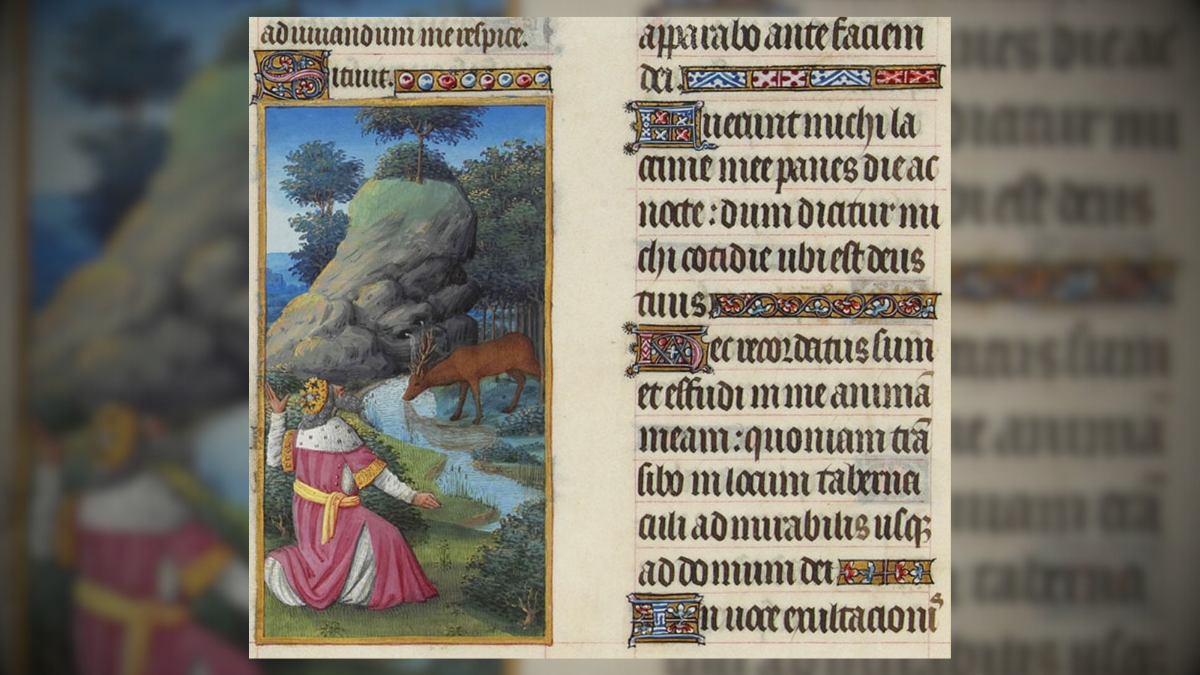 ad iuuandum me respice.
Sitiuit.
apparabo ante faciem
dei.
Fuerunt michi la
crime mee panes die ac
nocte : dum dicitur mi
chi cotidie ubi est deus
tuus
Hec recordatus sum
et effudi in me animā
meam : quoniam trā
sibo in locum taberna
culi admirabilis usqꝫ
ad domum dei
In uoce exultacionis